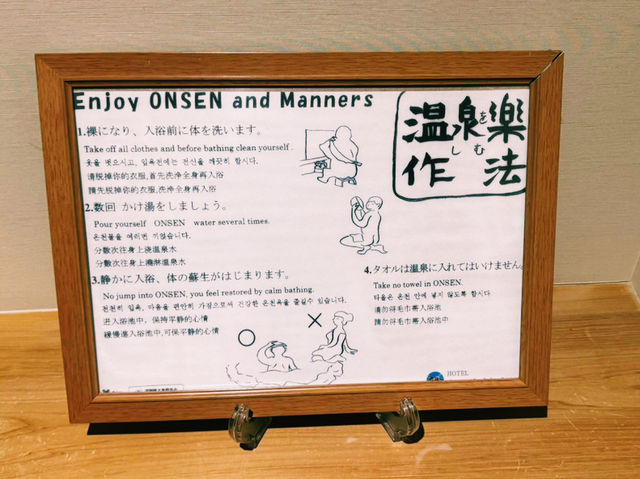 Enjoy ONSEN and Manners
温泉を楽しむ作法
1.裸になり、入浴前に体を洗います。
Take off all clothes and before bathing clean yourself.
옷을 벗으시고, 입욕전에는 전신을 깨끗히 합시다.
请脱掉你的衣服,首先洗浄全身再入浴
請先脱掉你的衣服,洗浄全身再入浴
2.数回 かけ湯をしましょう。
Pour yourself ONSEN water several times.
온천물을 여러번 끼얹습니다.
分数次往身上浇温泉水
分數次往身上澆淋温泉水
3.静かに入浴、体の蘇生がはじまります。
No jump into ONSEN, you feel restored by calm bathing.
천천히 입욕, 마음을 편안히 가짐으로써 건강한 온천욕을 즐길수 있습니다.
进入浴池中，保持平静的心情
緩慢進入浴池中,可保平静的心情
4.タオルは温泉に入れてはいけません。
Take no towel in ONSEN.
타올은 온천 안에 넣지 않도록 합시다
请勿将毛巾带入浴池
請勿將毛巾帶入浴池中
HOTEL